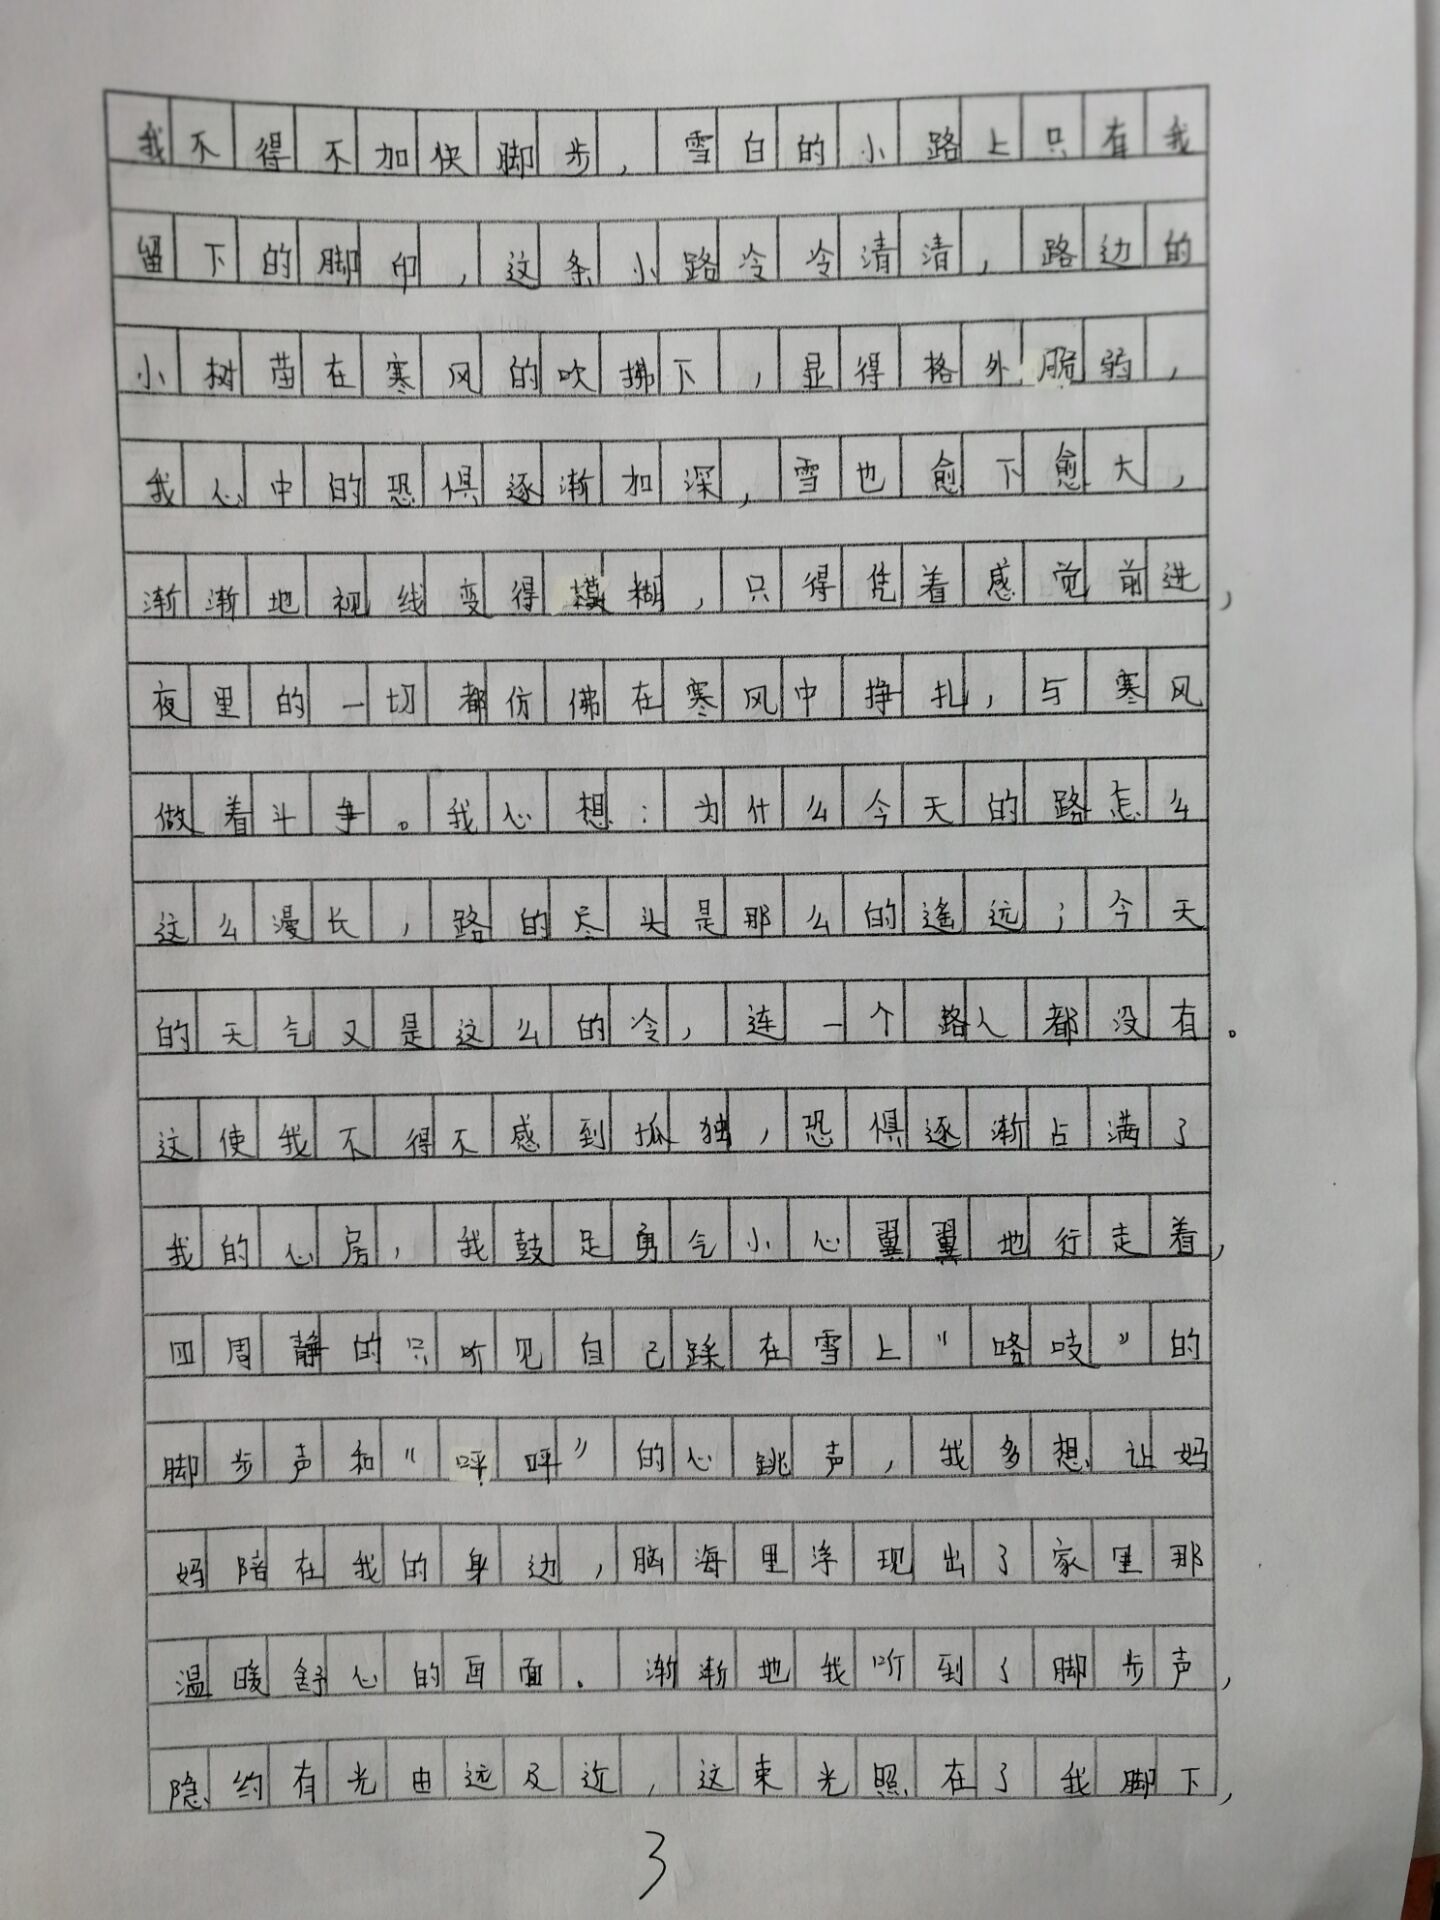 我不得不加快脚步，雪白的小路上只有我
留下的脚印，这条小路冷冷清清，路边的
小树苗在寒风的吹拂下，显得格外脆弱，
我心中的恐惧逐渐加深，雪也愈下愈大，
渐渐地视线变得模糊，只得凭着感觉前进，
夜里的一切都仿佛在寒风中挣扎，与寒风
做着斗争。我心想：为什么今天的路怎么
这么漫长，路的尽头是那么的遥远；今天
的天气又是这么的冷，连一个路人都没有。
这使我不得不感到孤独，恐惧逐渐占满了
我的心房，我鼓足勇气小心翼翼地行走着，
四周静的只听见自己踩在雪上“咯吱”的
脚步声和“呯呯”的心跳声，我多想让妈
妈陪在我的身边，脑海里浮现出了家里那
温暖舒心的画面。渐渐地我听到了脚步声，
隐约有光由远及近，这束光照在了我脚下，
3